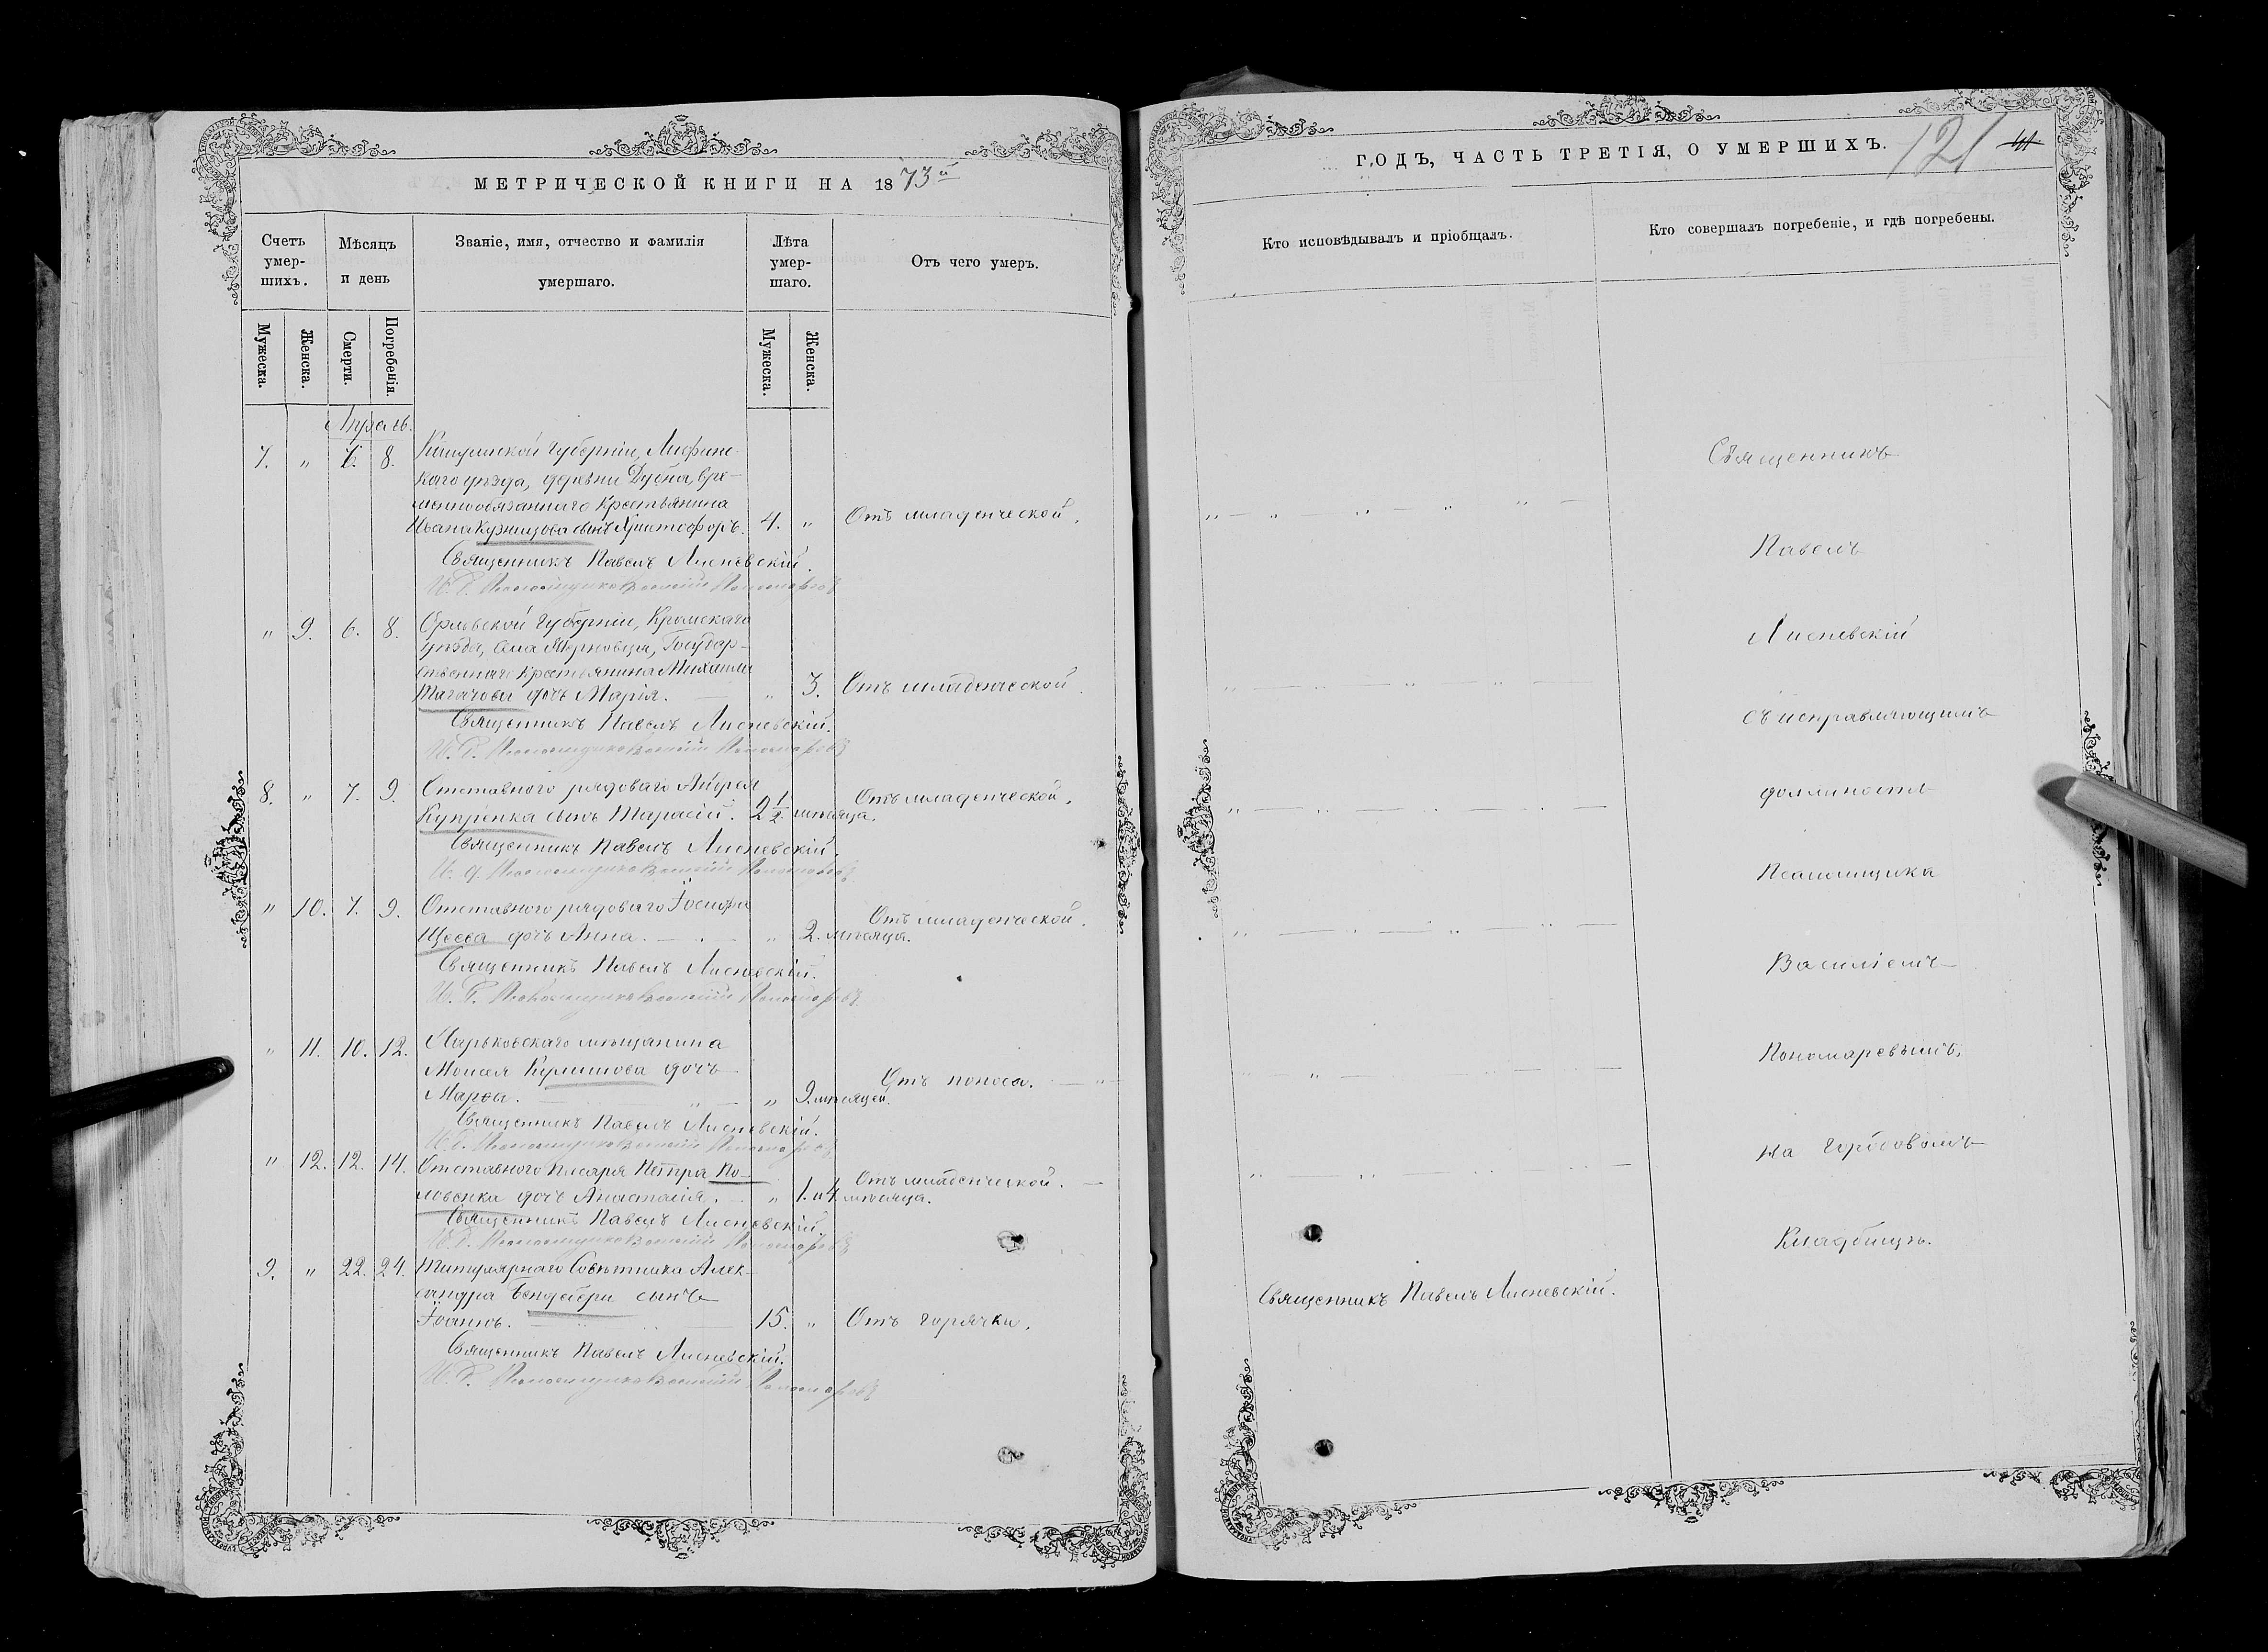 МЕТРИЧЕСКОЙ КНИГИ НА 1873й
Счетъ умер-шихъ.
Мѣсяцъ и день
Званіе, имя, отчество и фамилія умершаго.
Лѣта умер-шаго.
Отъ чего умеръ.
Мужеска. Женска. Смерти. Погребенія. Мужеска. Женска.
Апрель.
7. „ 6. 8. Калужской Губерніи, Лифин-
скаго уѣзда, деревни Дубна, вре-
меннообязаннаго крестьянина
Ивана Кузнецова сынъ Христофоръ. 4. „ Отъ младенческой.
Священникъ Павелъ Лисневскій.
И. д. Псаломщика Василій Пономаревъ
„ 9. 6. 8. Орловской Губерніи, Кромскаго
уѣзда, села Государ-
ственнаго крестьянина Михаила
дочь Марія. „ 3. Отъ младенческой.
Священникъ Павелъ Лисневскій.
И. д. Псаломщика Василій Пономаревъ
8. „ 7. 9. Отставного рядоваго Андрея
Купріенка сынъ Тарасій. 2 1/2 мѣсяца. Отъ младенческой.
Священникъ Павелъ Лисневскій
И. д. Псаломщика Василій Пономаревъ
„ 10. 7. 9. Отставного рядоваго Іосифа
дочь Анна. „ 2. мѣсяца. Отъ младенческой.
Священникъ Павелъ Лисневскій.
И. д. Псаломщика Василій Пономаревъ
„ 11. 10. 12. Харьковскаго мѣщанина
Моисея Куликова дочь
Марѳа. „ 9. мѣсяцей. Отъ поноса.
Священникъ Павелъ Лисневскій.
И. д. Псаломщика Василій Пономаревъ
„ 12. 12. 14. Отставного писаря Петра По-
ловенка дочь Анастасія. „ 1. и 4 мѣсяца. Отъ младенческой.
Священникъ Павелъ Лисневскій
И. д. Псаломщика Василій Пономаревъ
9. „ 22. 24. Титулярнаго Совѣтника Алек-
сандра Бендебери сынъ
Іоаннъ. 15. „ Отъ горячки.
Священникъ Павелъ Лисневскій.
И. д. Псаломщика Василій Пономаревъ
ГОДЪ, ЧАСТЬ ТРЕТІЯ, О УМЕРШИХЪ.
121
Кто исповѣдывалъ и пріобщалъ.
Кто совершалъ погребеніе, и гдѣ погребены.
Священникъ
Павелъ
Лисневскій
съ исправляющимъ
должность
Псаломщика
Василіемъ
Пономаревымъ,
на городовомъ
Кладбищѣ.
Священникъ Павелъ Лисневскій.